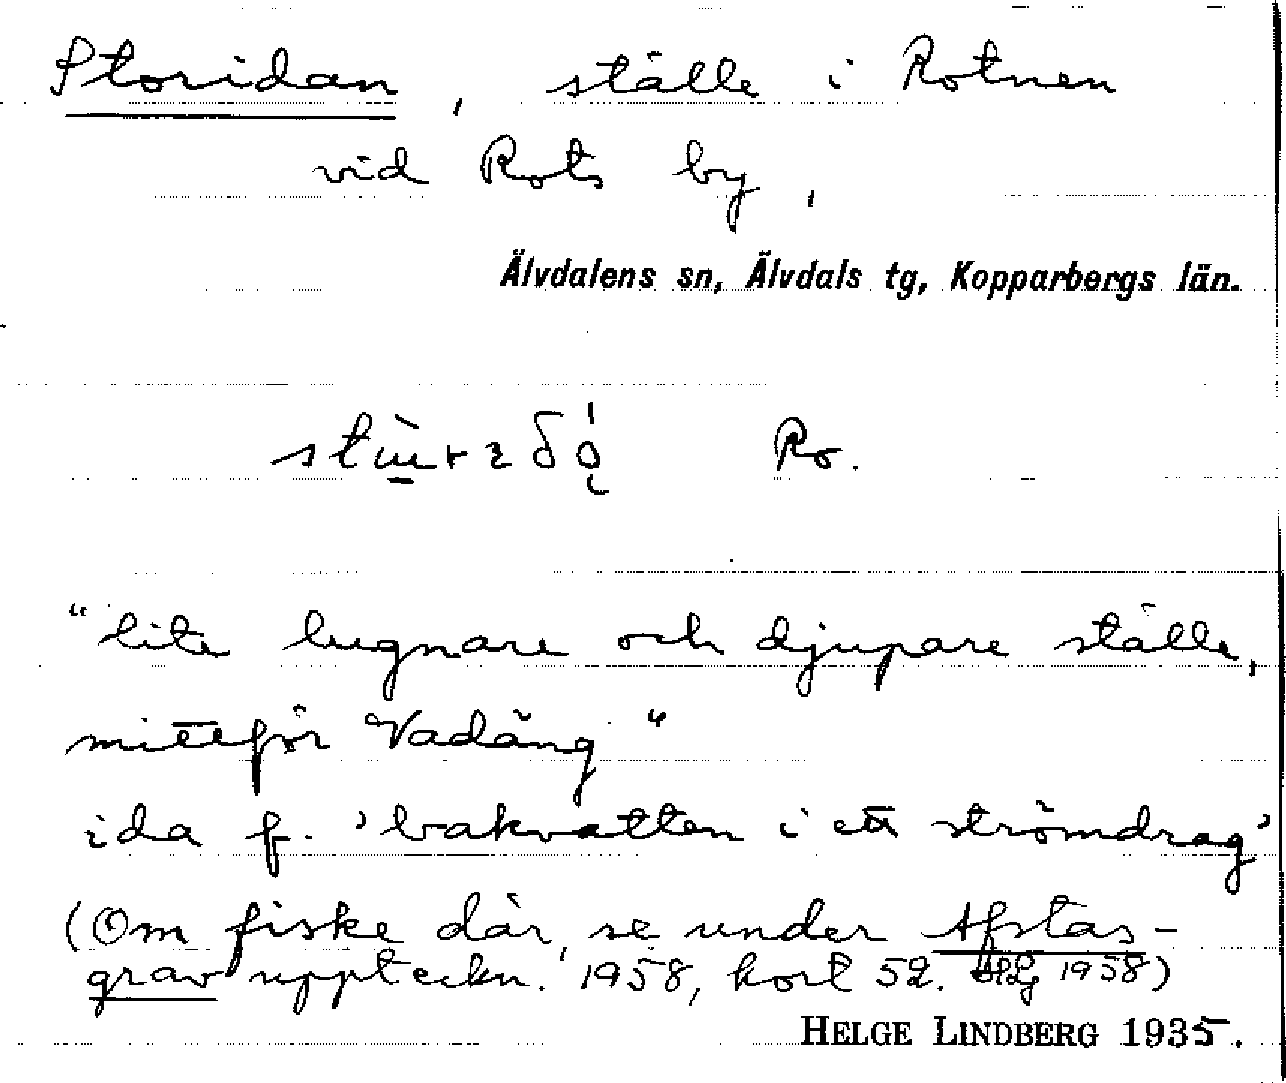 Storidan, ställe i Rotnen
vid Rots by,
Älvdalens sn, Älvdals tg, Kopparbergs län.
Ro.
"lite lugnare och djupare ställe,
mittför Vadäng"
ida f. 'bakvatten i ett strömdrag'
(Om fiske där, se under Afstas-
grav uppteckn. 1958, kort 52. HLg 1958)
HELGE LINDBERG 1935.